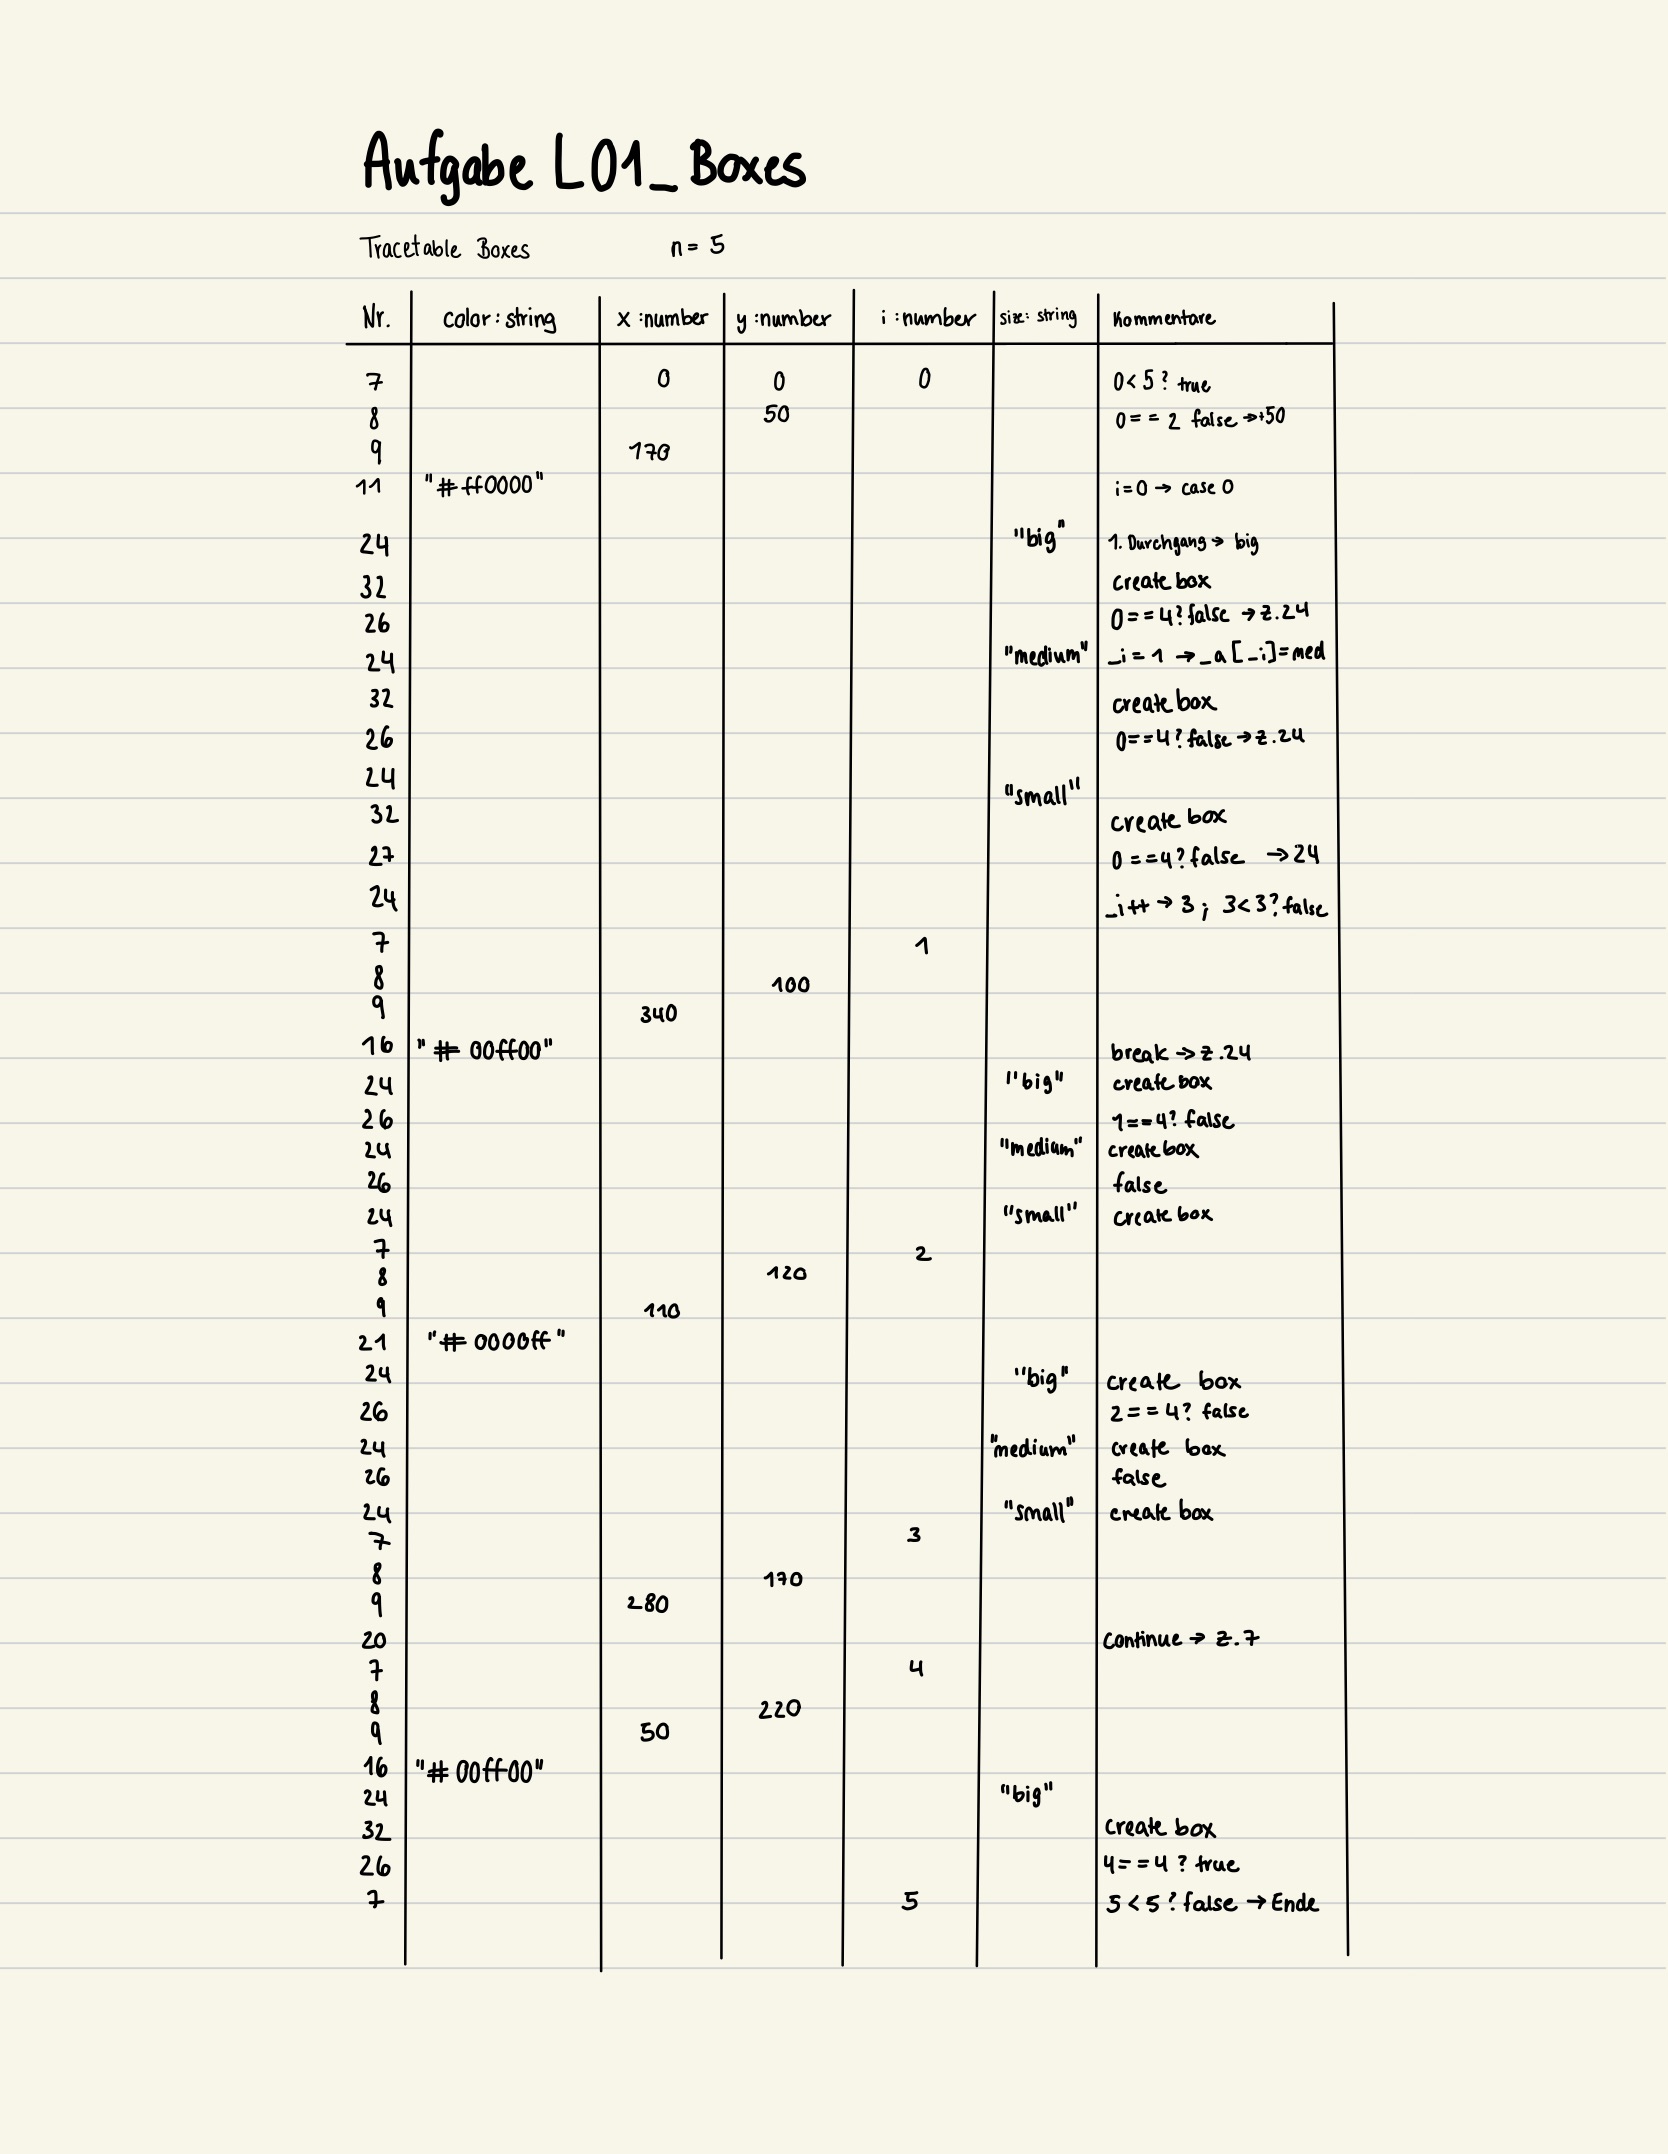 Aufgabe L01_Boxes
Tracetable Boxes n = 5
Nr. color: string x :number y :number i :number size: string Kommentare
7 0 0 0 0 < 5 ? true
8 50 0 = = 2 false →+50
9 170
11 "#ff0000" i = 0 → case 0
24 "big" 1. Durchgang → big
32 create box
26 0 = = 4 ? false → z.24
24 "medium" _i = 1 → _a [_i] = med
32 create box
26 0 = = 4 ? false → z.24
24 "small"
32 create box
27 0 = = 4 ? false → 24
24 _i ++ → 3 ; 3 < 3 ? false
7 1
8 100
9 340
16 "# 00ff00" break → z.24
24 "big" create box
26 1 = = 4 ? false
24 "medium" create box
26 false
24 "small" create box
7 2
8 120
9 110
21 "# 0000ff" 
24 "big" create box
26 2 = = 4 ? false
24 "medium" create box
26 false
24 "small" create box
7 3
8 170
9 280
20 continue → z.7
7 4
8 220
9 50
16 "# 00ff00"
24 "big"
32 create box
26 4 = = 4 ? true
7 5 5 < 5 ? false → Ende